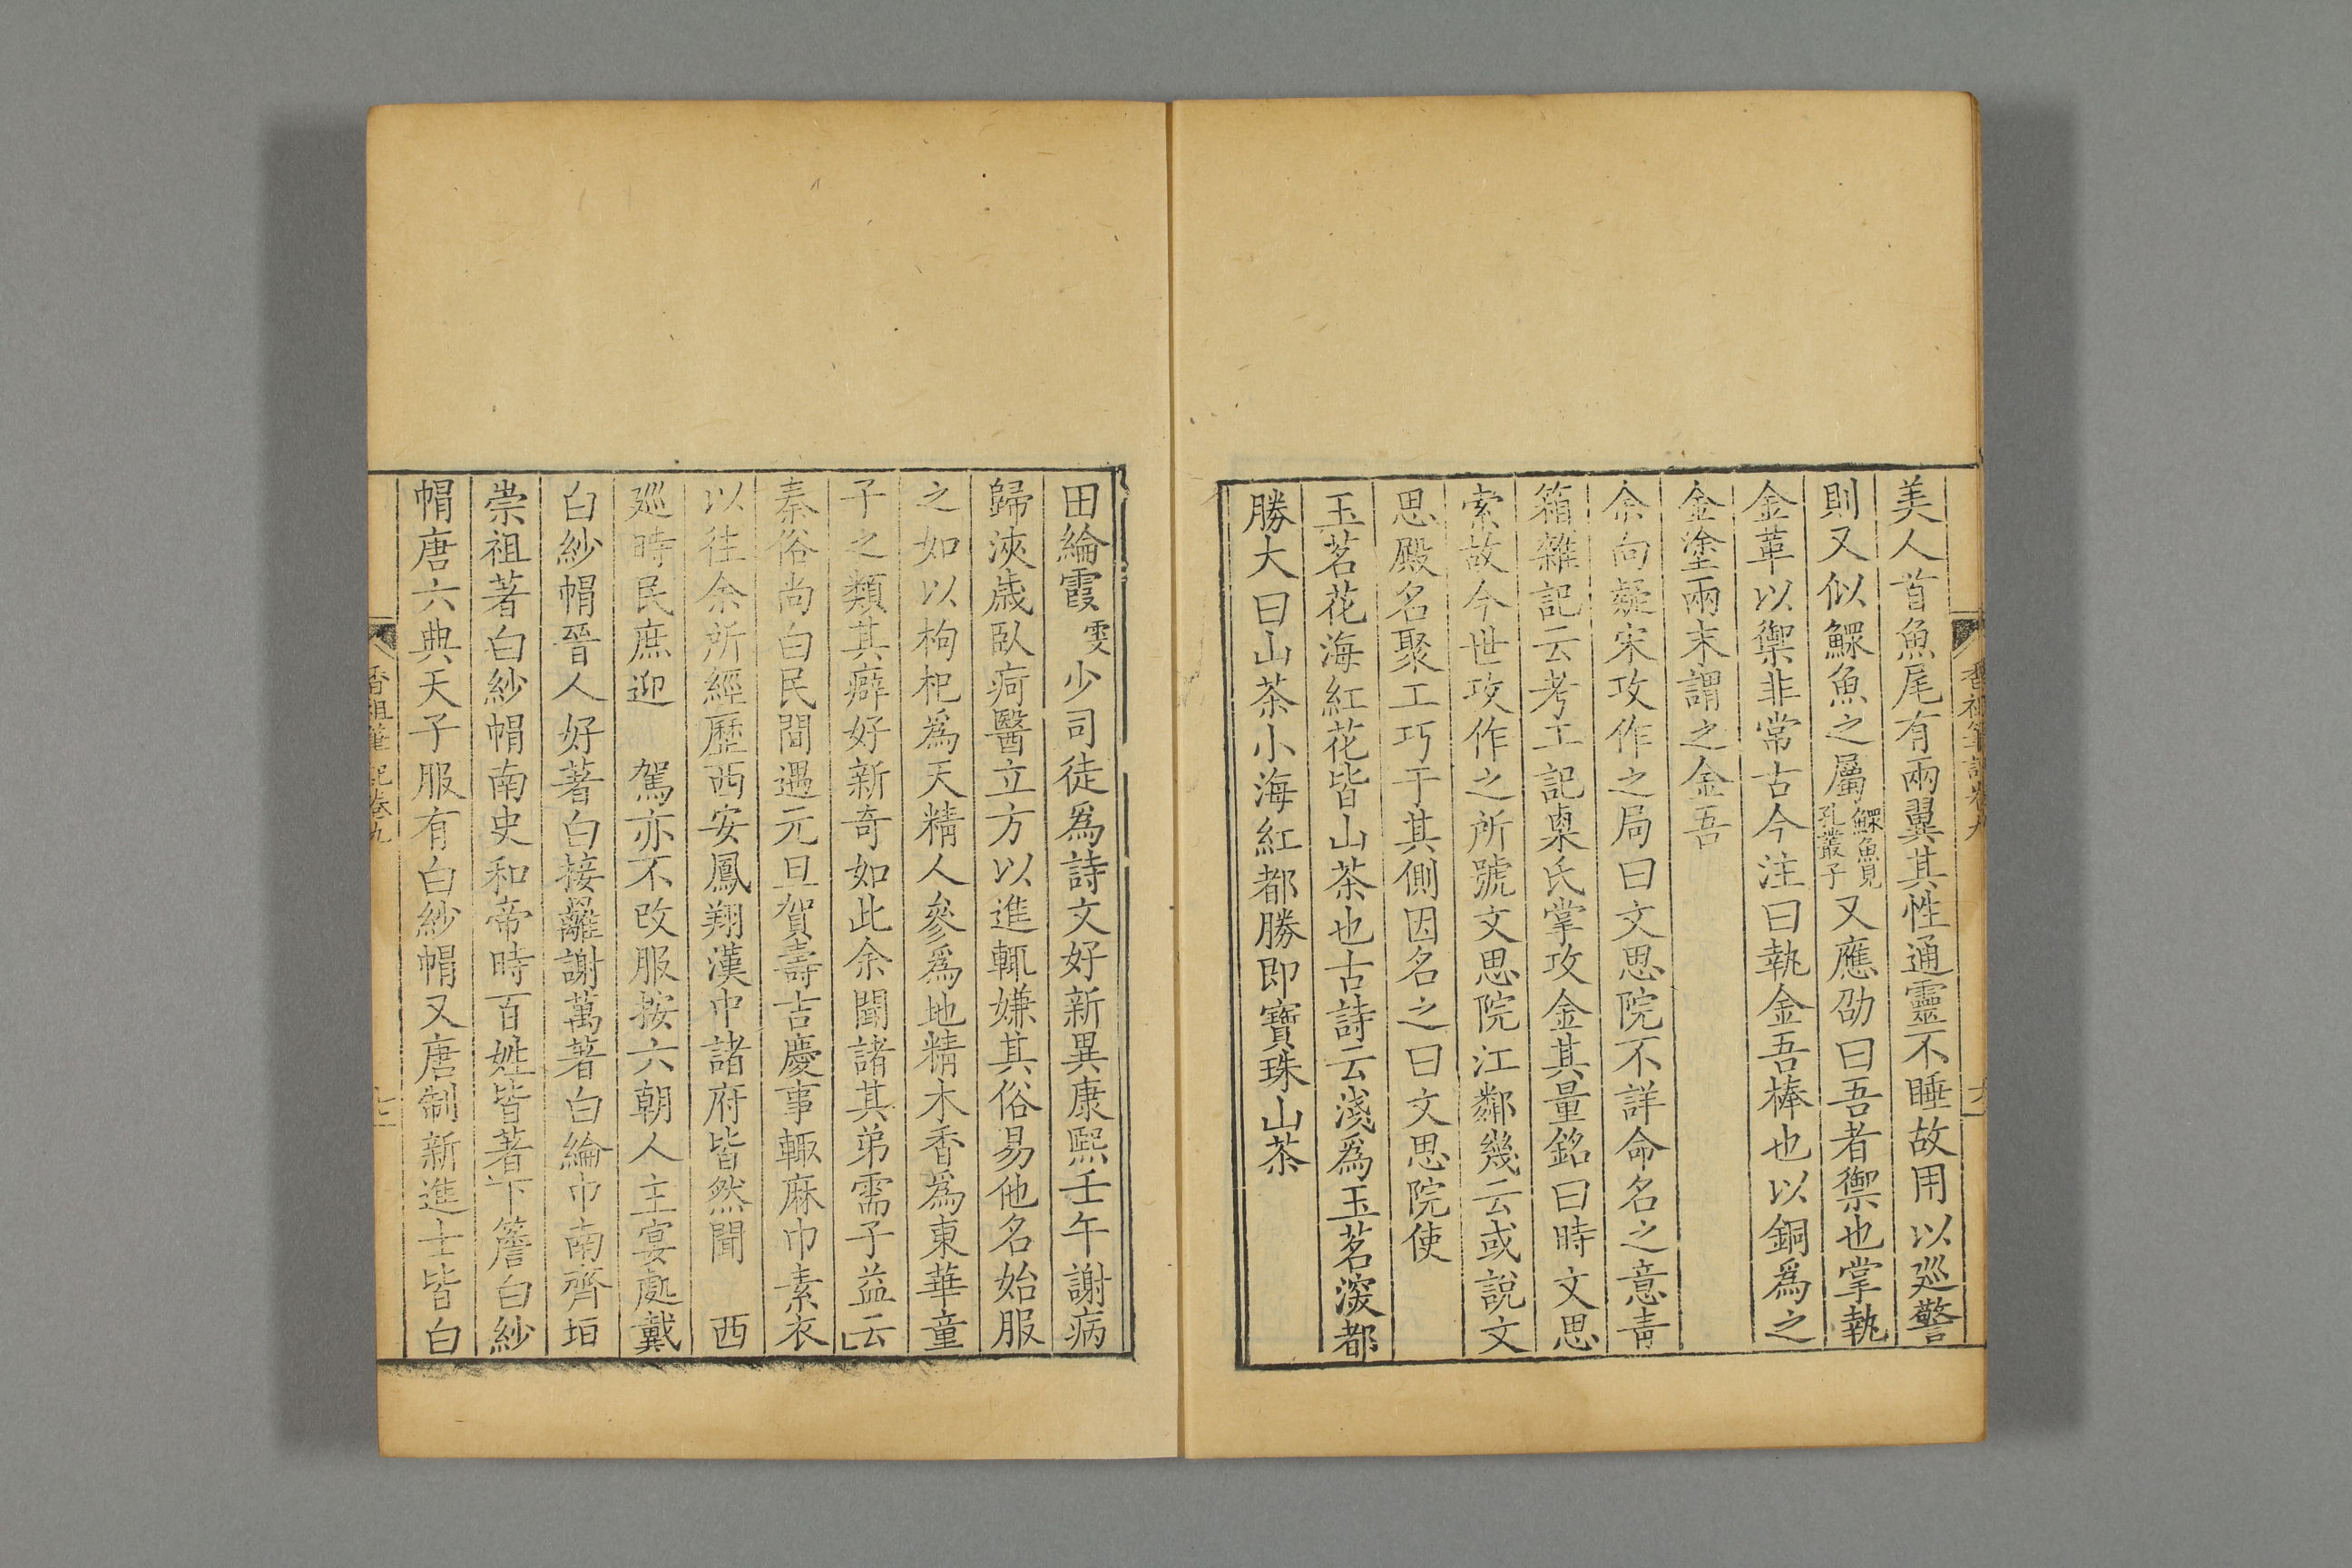 美人首魚尾有兩翼其性通靈不睡故用以廵警
則又似鰥魚之屬鰥魚見孔叢子又應劭曰吾者禦也掌執
金革以禦非常古今注曰執金吾棒也以銅爲之
金塗兩末謂之金吾
余向疑宋攻作之局曰文思院不詳命名之意青
箱雜記云考工記㮚氏掌攻金其量銘曰時文思
索故今世攻作之所號文思院江鄰幾云或說文
思殿名聚工巧于其側因名之曰文思院使
玉茗花海紅花皆山茶也古詩云淺爲玉茗深都
勝大曰山茶小海紅都勝即寶珠山茶
田綸霞雯少司徒爲詩文好新異康熙壬午謝病
歸浹歲臥疴醫立方以進輒嫌其俗易他名始服
之如以枸杞爲天精人參爲地精木香爲東華童
子之類其癖好新奇如此余聞諸其弟需子益云
秦俗尚白民間遇元旦賀壽吉慶事輒麻巾素衣
以往余所經歷西安鳳翔漢中諸府皆然聞　西
廵時民庶迎　駕亦不改服按六朝人主宴處戴
白紗帽晉人好著白接䍦謝萬著白綸巾南齊垣
崇祖著白紗帽南史和帝時百姓皆著下簷白紗
帽唐六典天子服有白紗帽又唐制新進士皆白
香祖筆記卷九